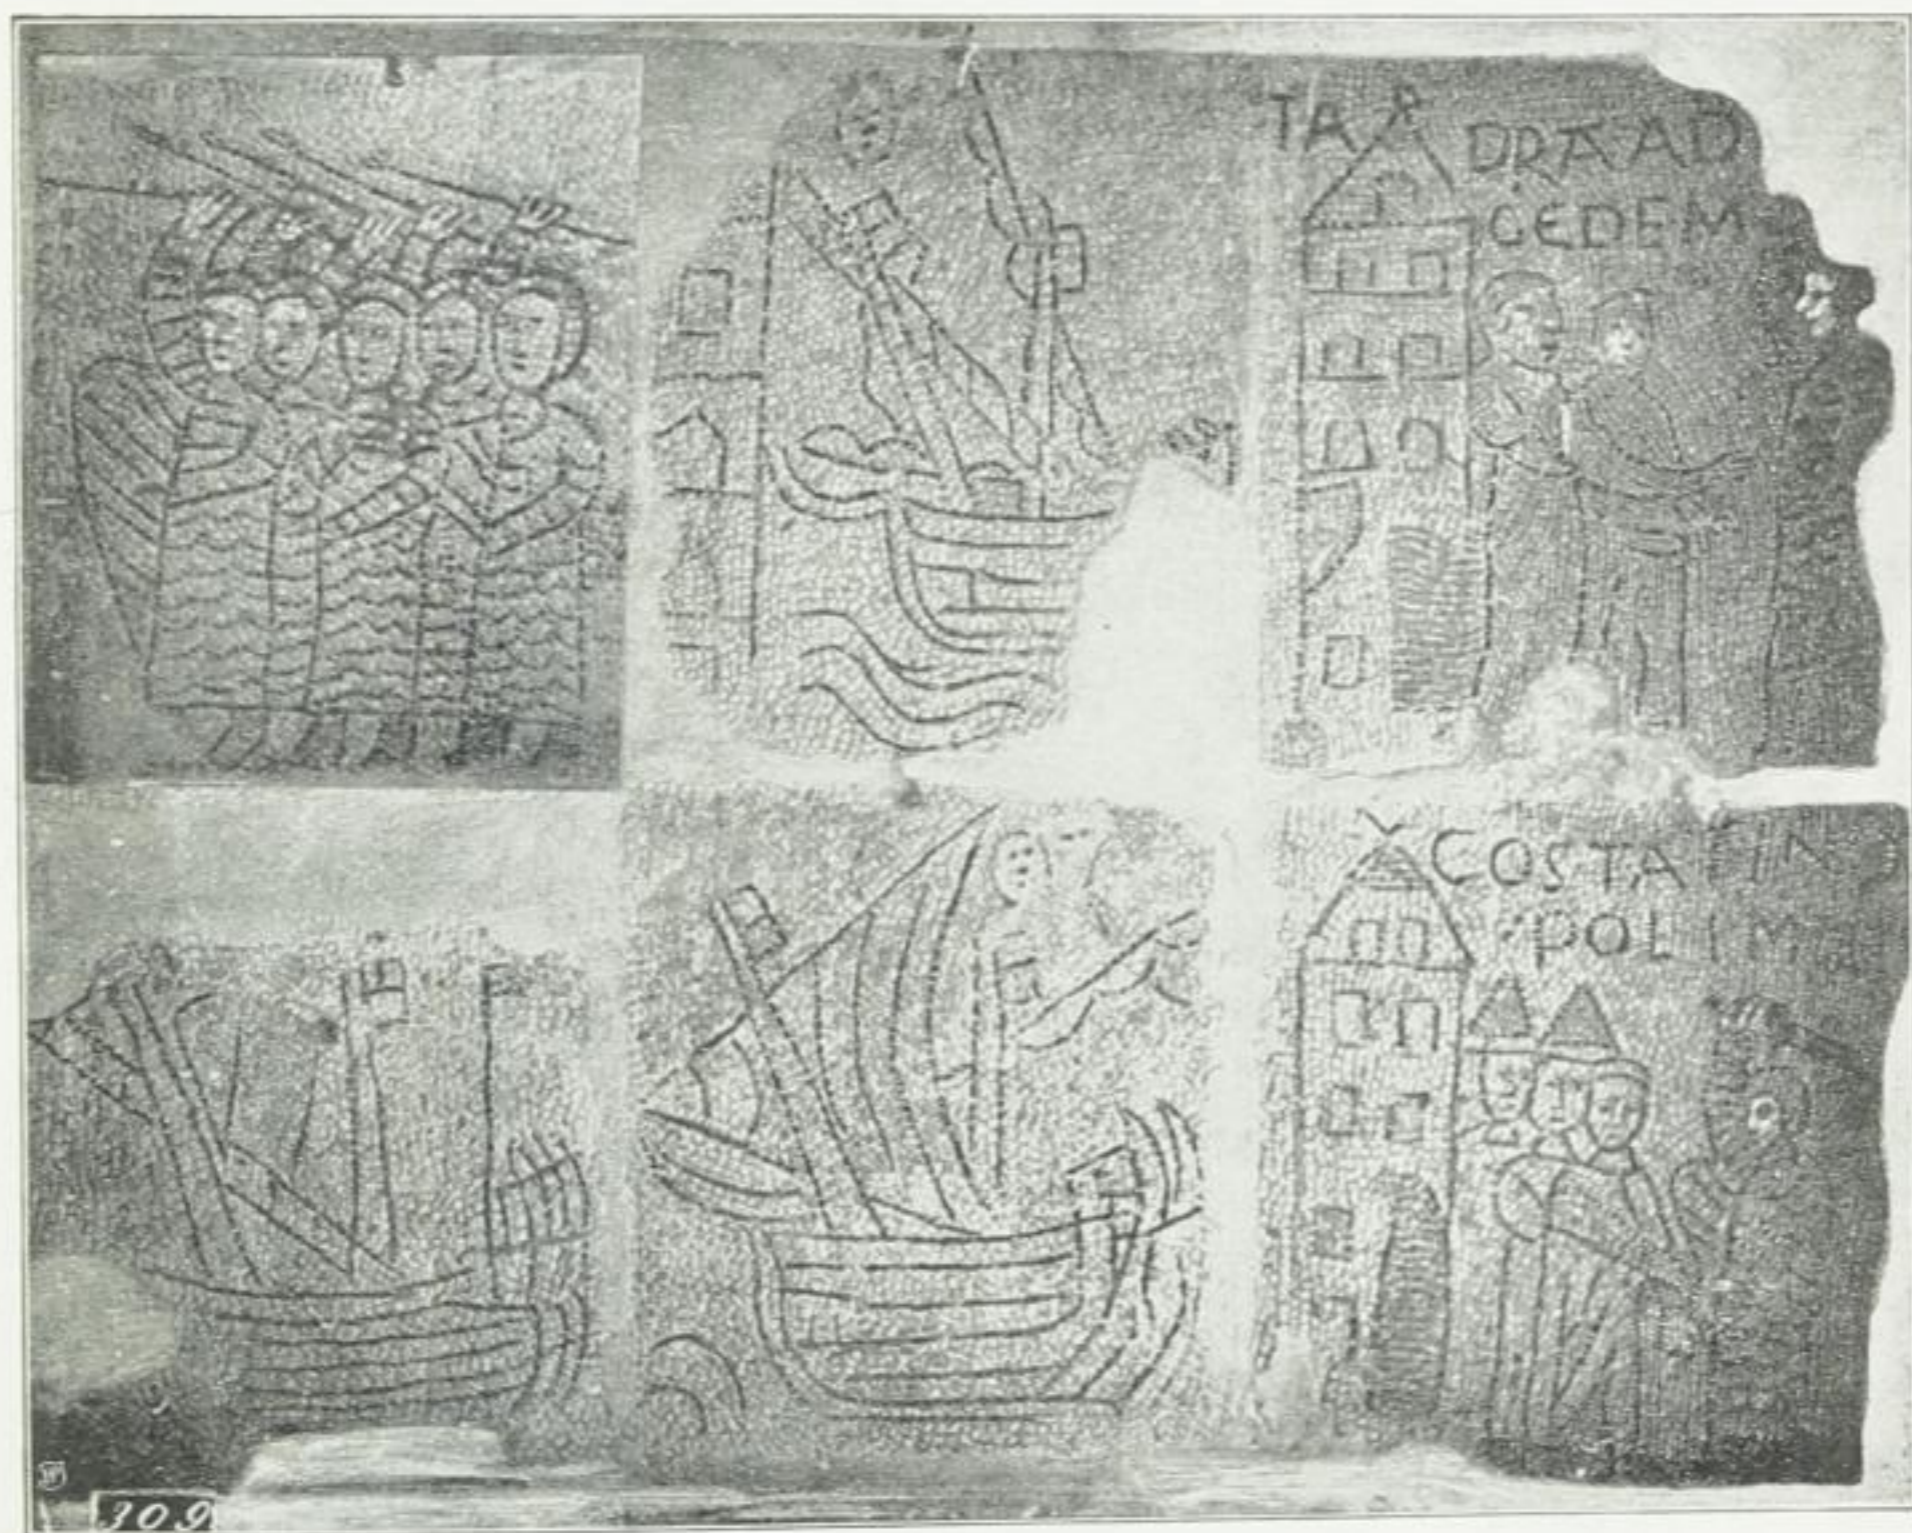 TA
DRAAD
CEDEM
COSTATIN
POLIM
309